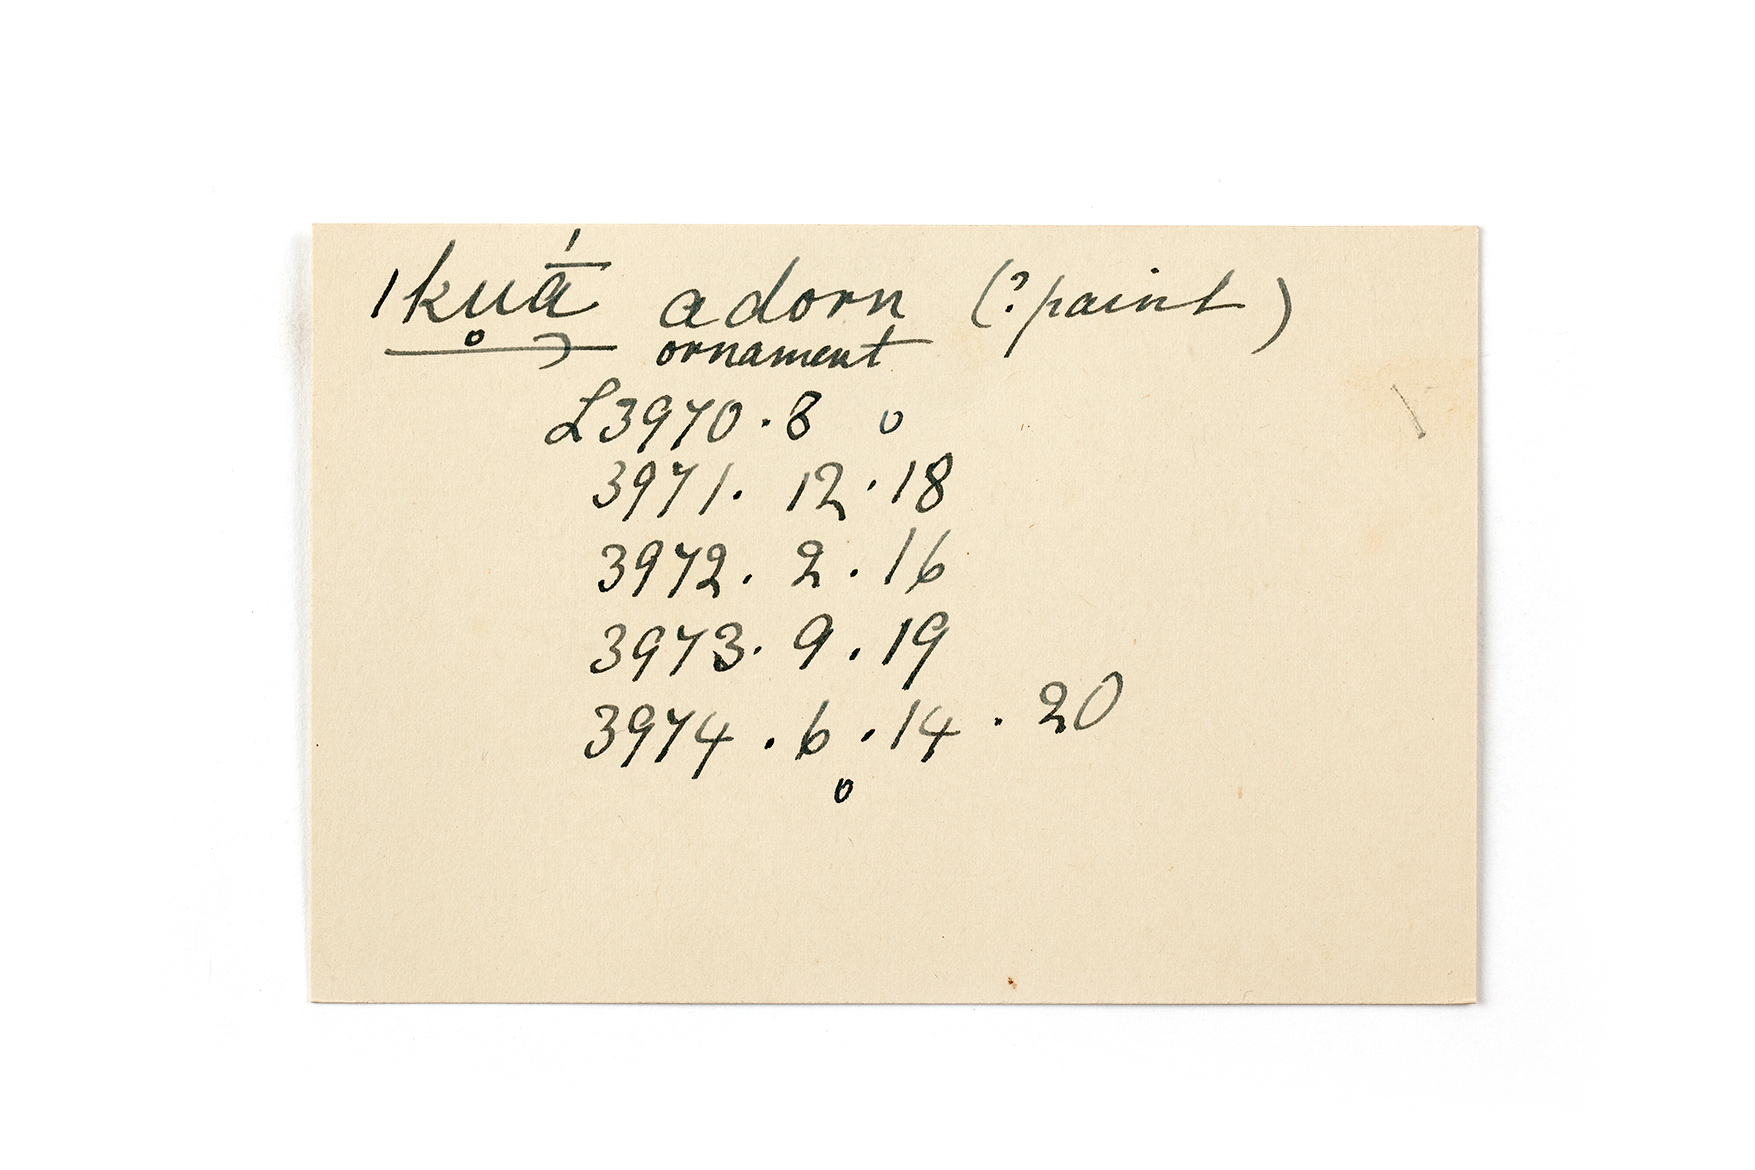 |kuā́ adorn (? paint)
ornament
L3970.8 o
3971. 12.18
3972. 2.16
3973. 9.19
3974.6.14.20
o